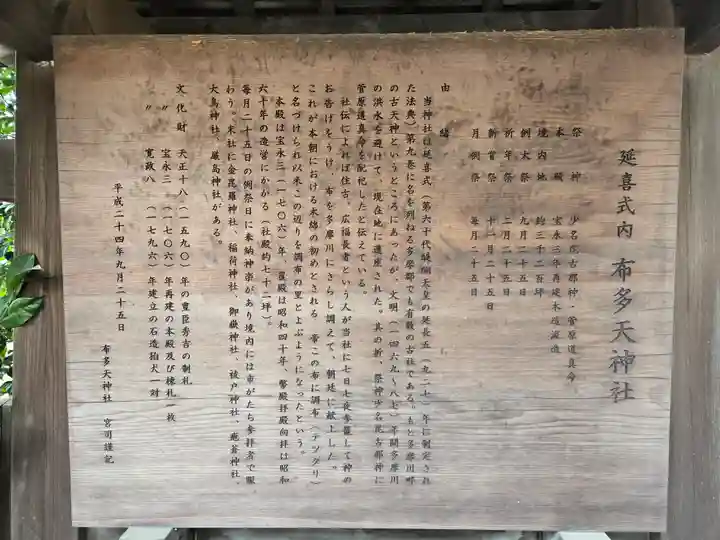 延喜式内 布多天神社
祭神 少名毘古那神・菅原道真命
本殿 宝永三年再建木造流造
境内地 約三千二百坪
例大祭 九月二十五日
祈年祭 二月二十五日
新嘗祭 十一月二十五日
月例祭 毎月二十五日
由緒
当神社は延喜式(第六十代醍醐天皇の延長五(九二七)年に制定され
た法典)第九巻に名を列ねる多摩郡でも有数の古社である。もと多摩川畔
の古天神というところにあったが、文明(一四六九~八七)年間多摩川
の洪水を避けて、現在地に遷座された。其の折、祭神少名毘古那神に
菅原道真命を配祀したと伝えている。
社伝によれば往古、広福長者という人が当社に七日七夜参籠して神の
お告げをうけ、布を多摩川にさらし調えて、朝廷に献上した。
これが本朝における木綿の初めとされる 帝この布に調布(テツクリ)
と名づけられ以来この辺りを調布の里とよぶようになったという。
本殿は宝永三(一七〇六)年、覆殿は昭和四十年、幣殿拝殿向拝は昭和
六十年の造営にかかる(社殿約七十二坪)。
毎月二十五日の例祭日に奉納神楽があり境内には市がたち参拝者で賑
わう。末社に金毘羅神社、稲荷神社、御嶽神社、祓戸神社、疱瘡神社、
大鳥神社、厳島神社がある。
文化財 天正十八(一五九〇)年の豊臣秀吉の制札
〃 宝永三(一七〇六)年再建の本殿及び棟札一枚
〃 寛政八(一七九六)年建立の石造狛犬一対
平成二十四年九月二十五日
布多天神社 宮司謹記